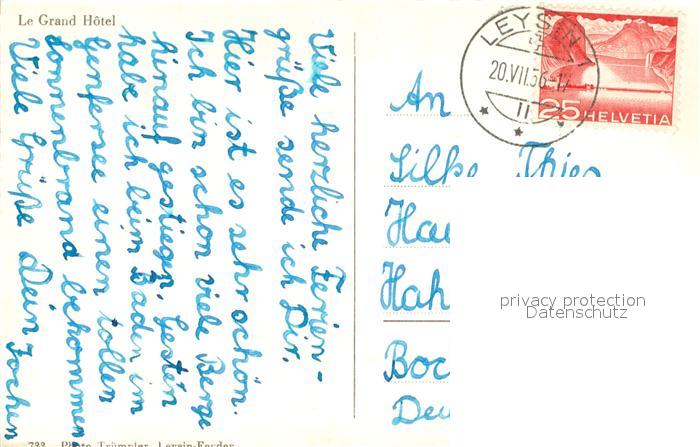 Le Grand Hôtel
Viele herzliche Ferien-
grüße sende ich Dir.
Hier ist es sehr schön.
Ich bin schon viele Berge
hinauf gestiegen. Gestern
habe ich beim Baden im
Genfersee einen tollen
Sonnenbrand bekommen
Viele Grüße Dein Jochen
LEYSIN
20.VII.56-17
25 HELVETIA
An
Silke Thies
Hah
Boc
privacy protection
Datenschutz
733 Photo Trümpler, Leysin-Feydey